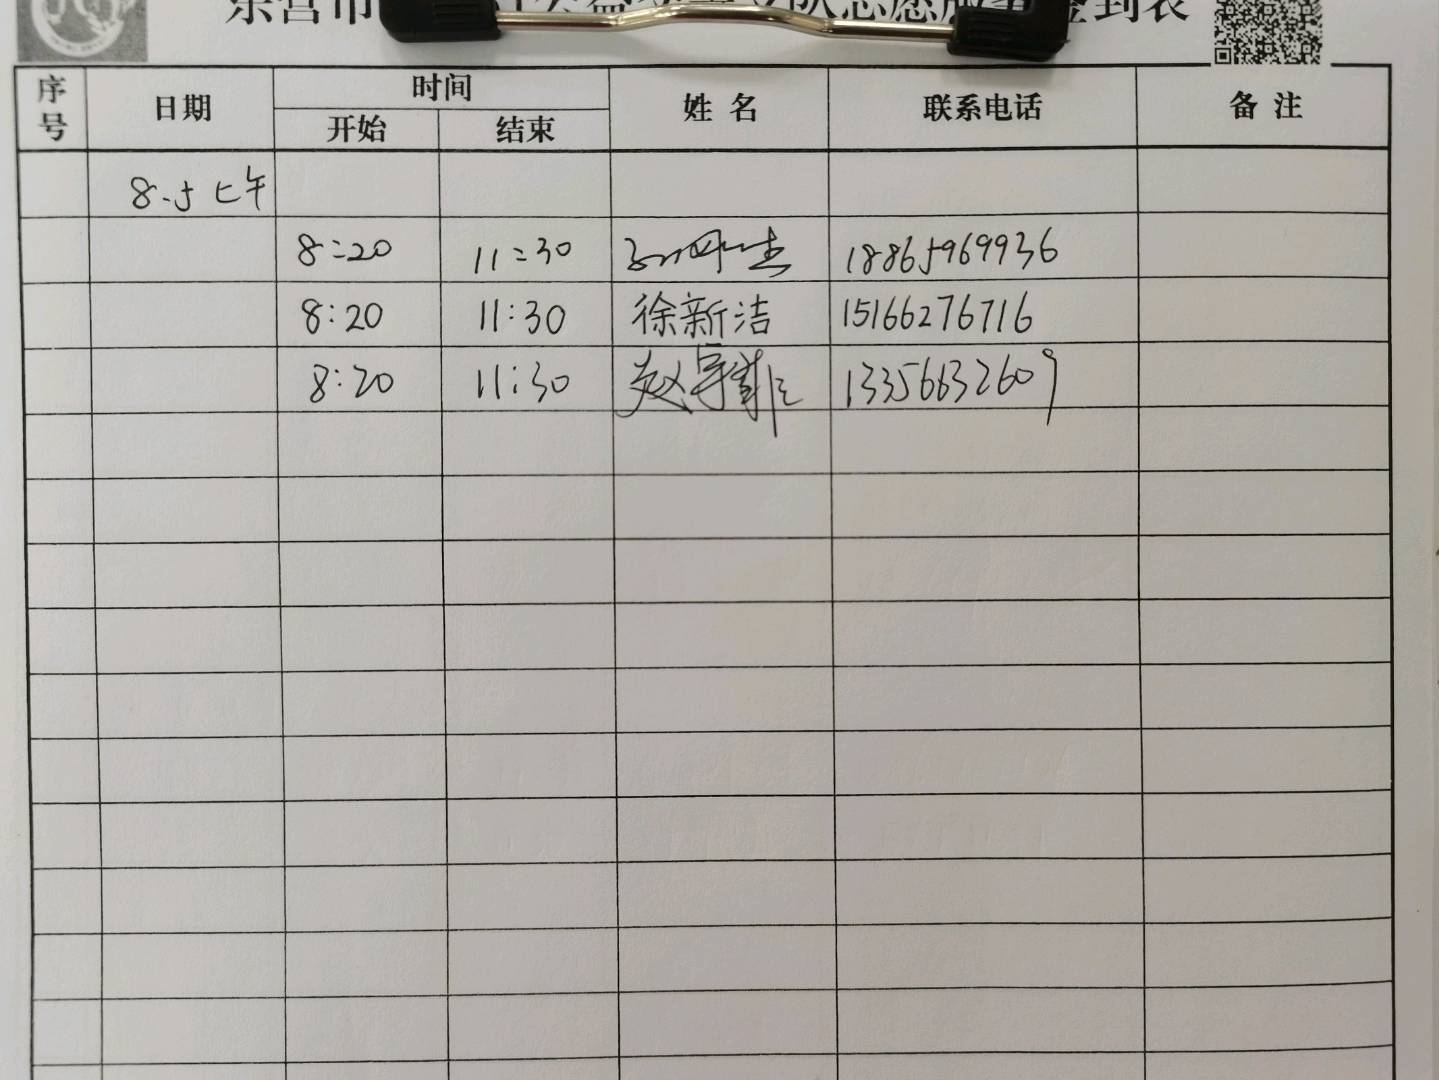 东营市
志愿服务签到表
序号 日期 时间 姓名 联系电话 备注
开始 结束
8.5上午
8:20 11:30 18865969936
8:20 11:30 徐新洁 15166276716
8:20 11:30 赵 13356632609